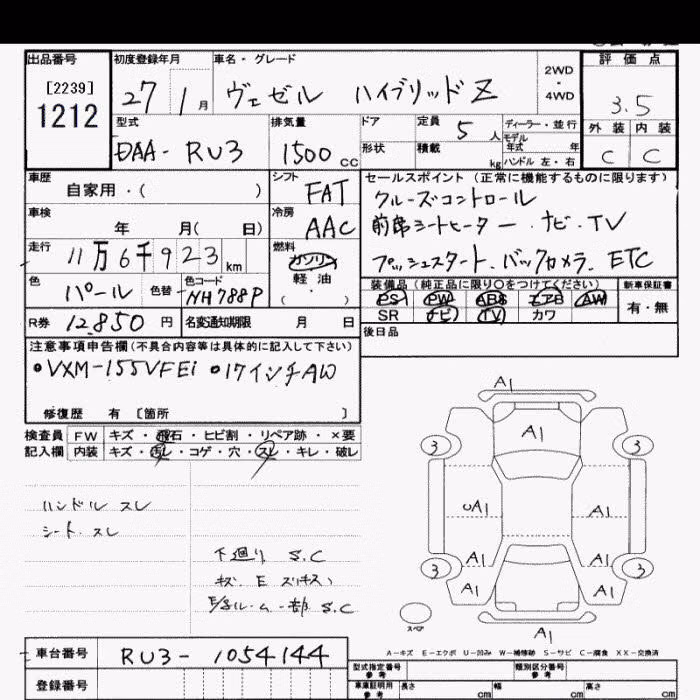 出品番号 初度登録年月 車名・グレード 2WD・4WD 評価点
[2239]
1212
27 1月 ヴェゼル ハイブリッド Z 3.5
型式 排気量 ドア 定員 5人 ディーラー・並行 外装 内装
モデル年式 年
DAA-RU3 1500cc 形状 積載 kg ハンドル 左・右 C C
車歴 シフト セールスポイント (正常に機能するものに限ります)
自家用・( ) FAT クルーズコントロール
車検 冷房 前席シートヒーター・ナビ・TV
年 月( 日) AAC
走行 燃料 プッシュスタート、バックカメラ、ETC
11万6千923km ガソリン
軽油
( ・ )
色 色替 色コード 装備品 (純正品に限り○をつけてください) 新車保証書
パール NH788P PS PW ABS エアB AW 有・無
SR ナビ TV カワ
R券 12,850円 名変通知期限 月 日 後日品
注意事項申告欄(不具合内容等は具体的に記入して下さい)
•VXM-155VFEi •17インチAW
修復歴 有 [箇所 ]
検査員記入欄 FW キズ・飛石・ヒビ割・リペア跡・×要
内装 キズ・汚レ・コゲ・穴・スレ・キレ・破レ
ハンドル スレ
シート スレ
下廻り S.C
キズ、E
S.C
A1
3 A1 3
A1 A1
A1 A1
3 3
A1 A1
スペア
A1
A-キズ E-エクボ U-凹み W-補修跡 S-サビ C-腐食 XX-交換済
車台番号 RU3-1054144
型式指定番号 参考 類別区分番号 参考
登録番号 車庫証明用 参考 長さ cm 幅 cm 高さ cm